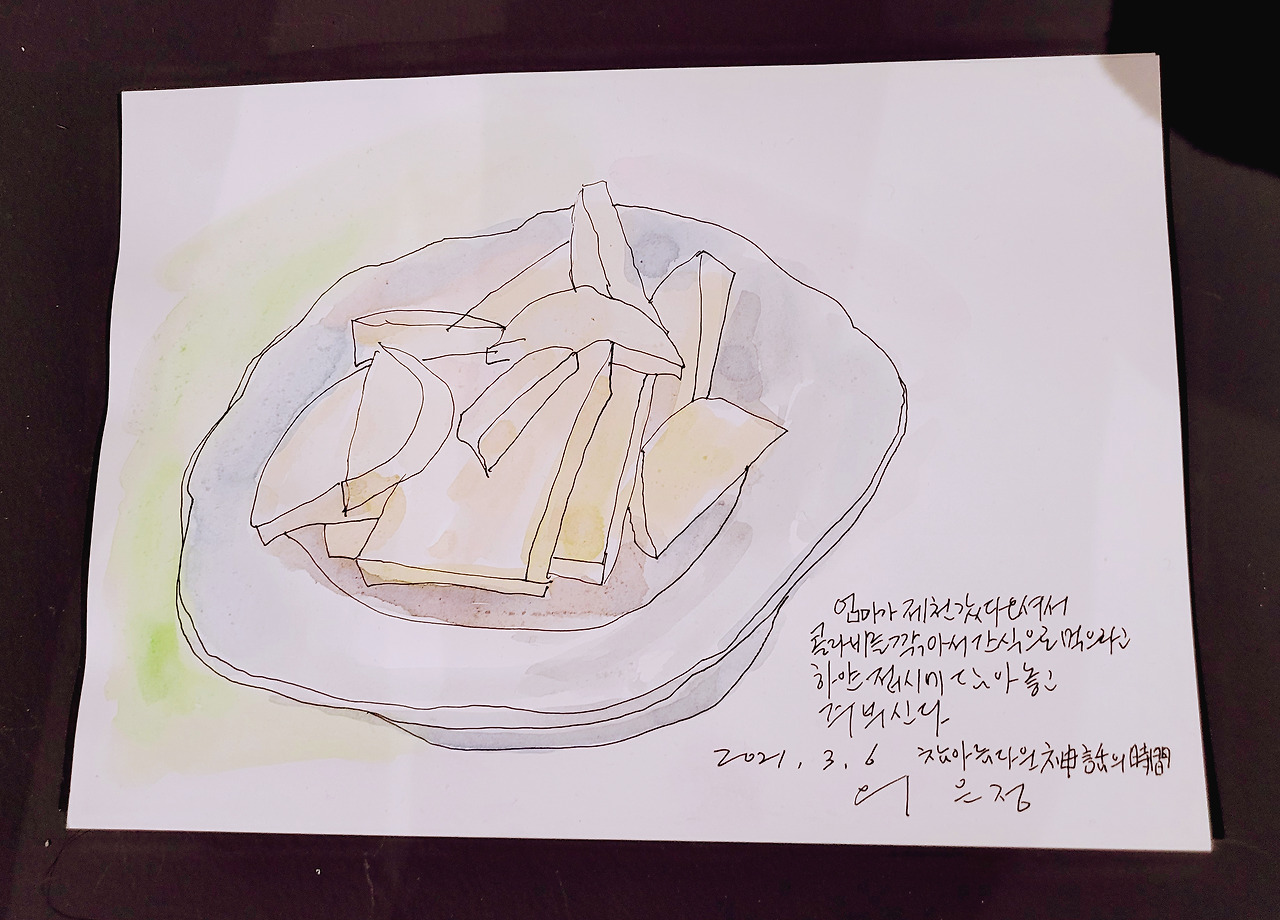 엄마가 제천갔다오셔서
콜라비를 깎아서 간식으로 먹으라고
하얀 접시에 담아 놓고
2021. 3. 6 神話의 時間
은정